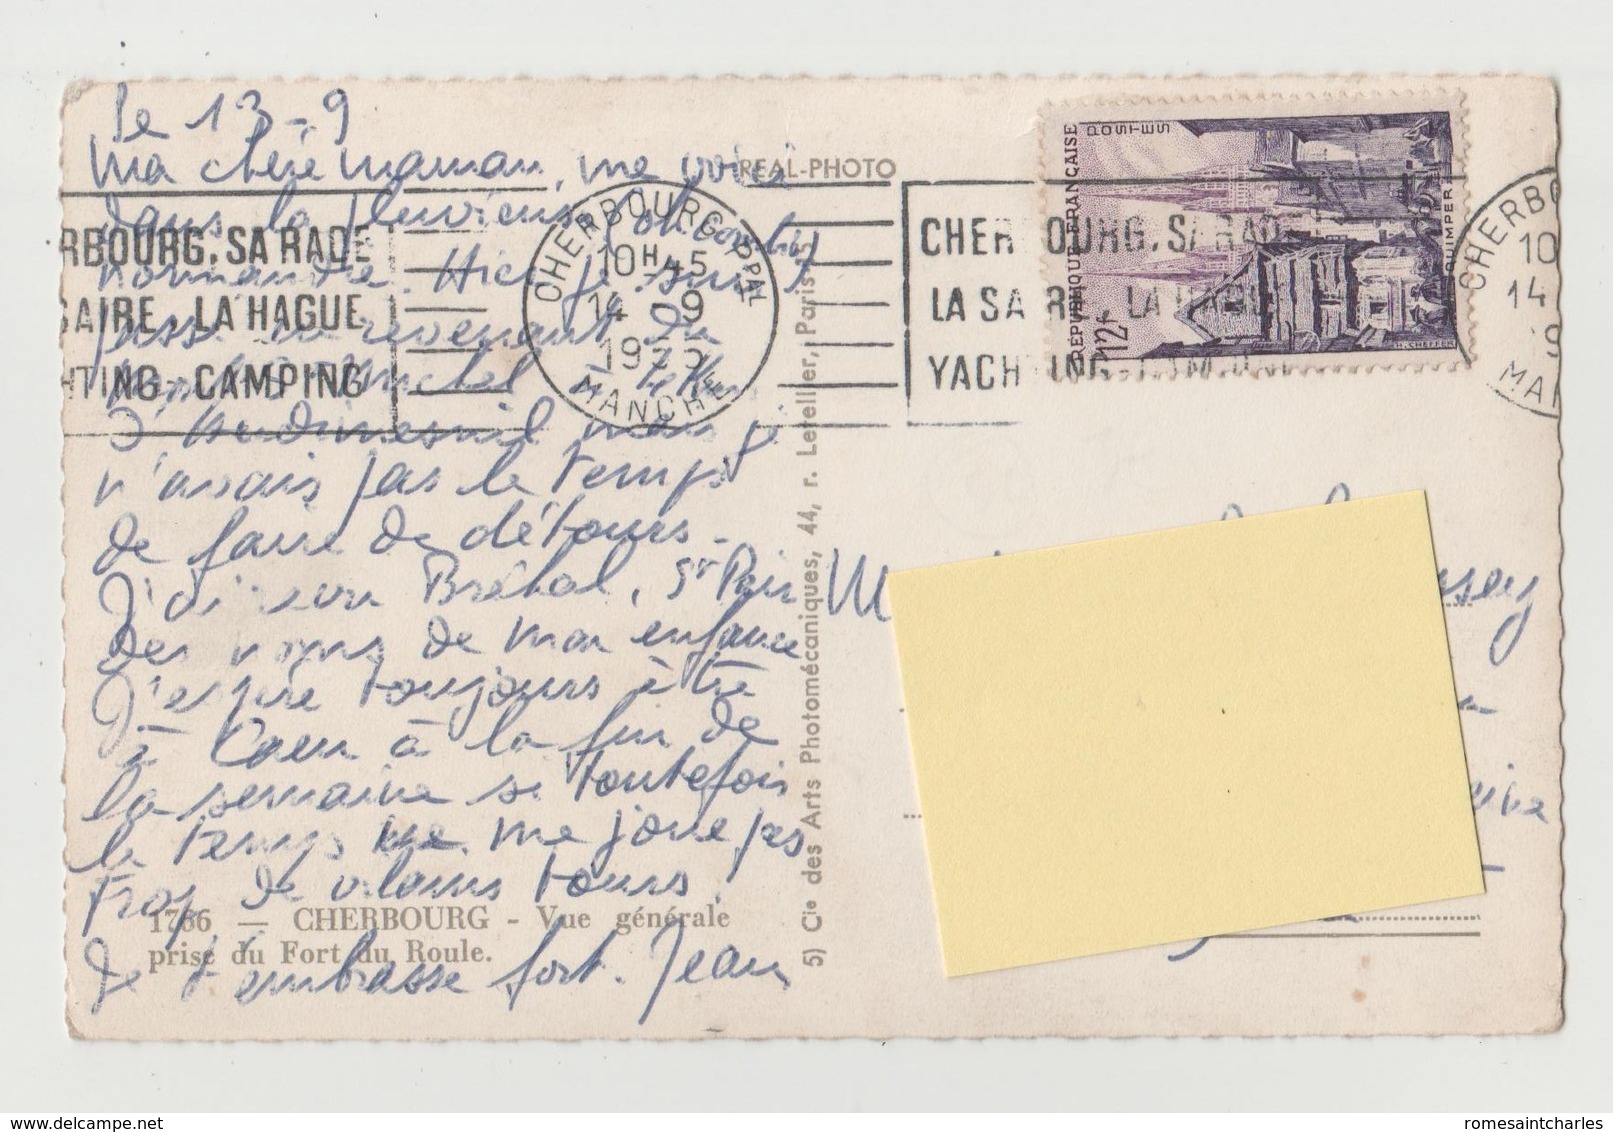 le 13-9
Ma chère maman, me voici
dans la pluvieuse
normandie. Hier je suis
passé en revenant du
Michel à
mais je
n'avais pas le temps
de faire de détours.
J'ai revu Bréhal, St Pair
des noms de mon enfance
J'espère toujours être
à Caen à la fin de
la semaine si toutefois
le temps ne me joue pas
trop de vilains tours.
Je t'embrasse fort. Jean
REAL-PHOTO
RBOURG, SA RADE
SAIRE, LA HAGUE
HTING - CAMPING
CHERBOURG PPAL
10H45
14 - 9
MANCHE
CHERBOURG, SA RADE
LA SAIRE, LA HAGUE
YACHTING - CAMPING
REPUBLIQUE FRANÇAISE
POSTES
12F
QUIMPER
H. CHEFFER
CHERBO
10
14
9
MAN
5) Cie des Arts Photomécaniques, 44, r. Letellier, Paris-15
1786 — CHERBOURG - Vue générale
prise du Fort du Roule.
romesaintcharles